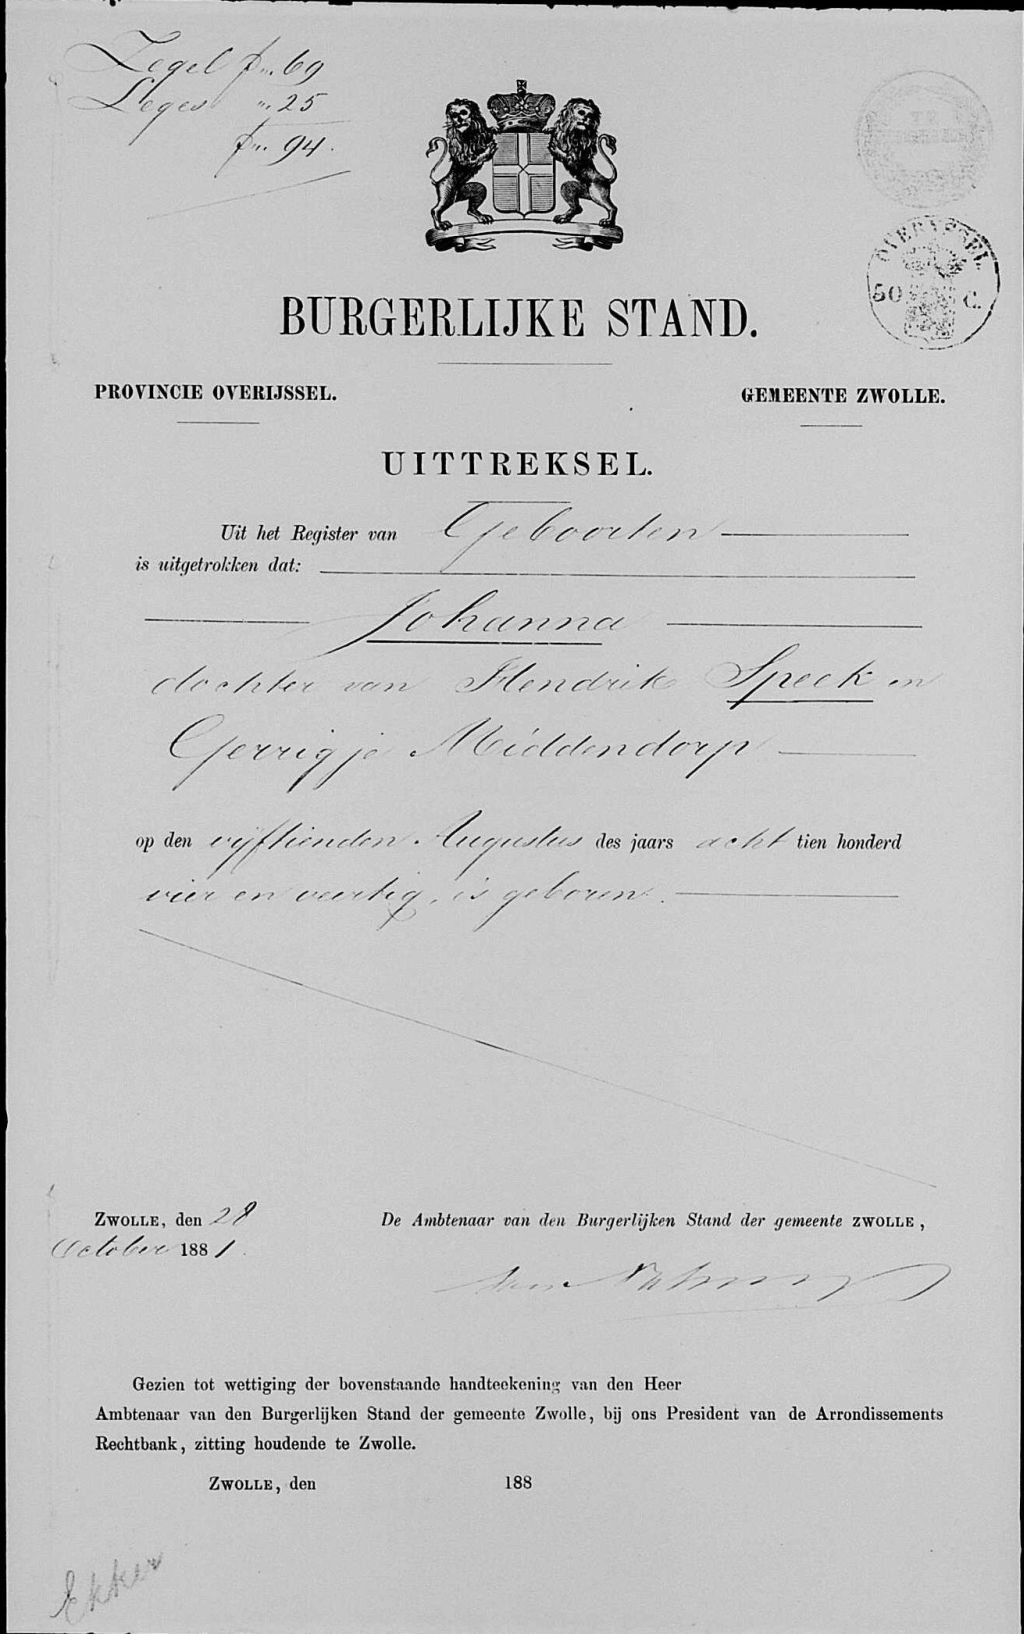 Zegel f „ 69
Leges „ „ 25
f „ 94.
OVERYSSEL.
50 C.
BURGERLIJKE STAND.
PROVINCIE OVERIJSSEL.
GEMEENTE ZWOLLE.
UITTREKSEL.
Uit het Register van Geboorten
is uitgetrokken dat:
Johanna
dochter van Hendrik Speek en
Gerrigje Middendorp
op den vijftienden Augustus des jaars acht tien honderd
vier en veertig, is geboren.
ZWOLLE, den 28
October 1881.
De Ambtenaar van den Burgerlijken Stand der gemeente ZWOLLE,
Gezien tot wettiging der bovenstaande handteekening van den Heer
Ambtenaar van den Burgerlijken Stand der gemeente Zwolle, bij ons President van de Arrondissements
Rechtbank, zitting houdende te Zwolle.
ZWOLLE, den 188
Ekker